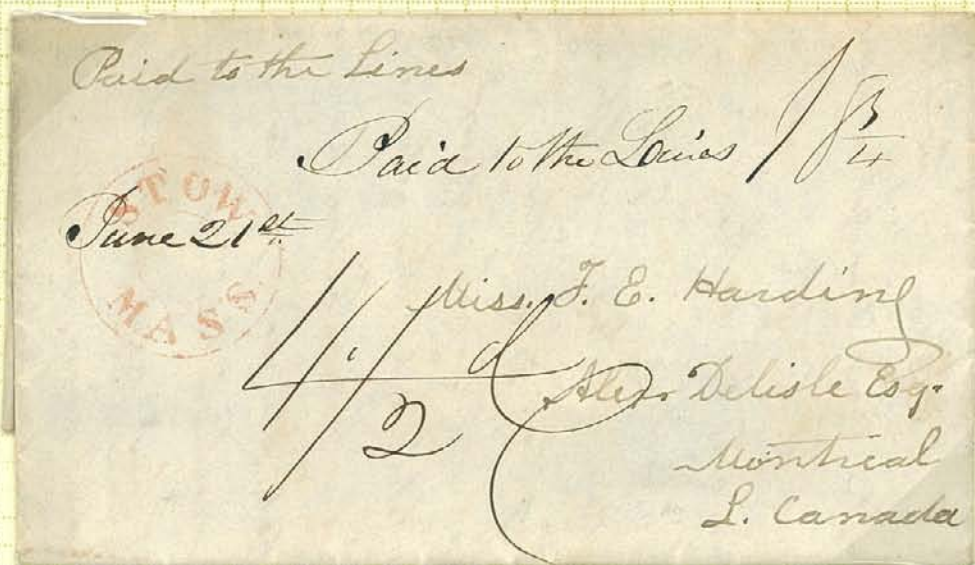 Paid to the Lines
Paid to the Lines 18 3/4
STOW
June 21st
MASS
4 1/2 d
Miss. F. E. Harding
Alexr Delisle Esq.
Montreal
L. Canada